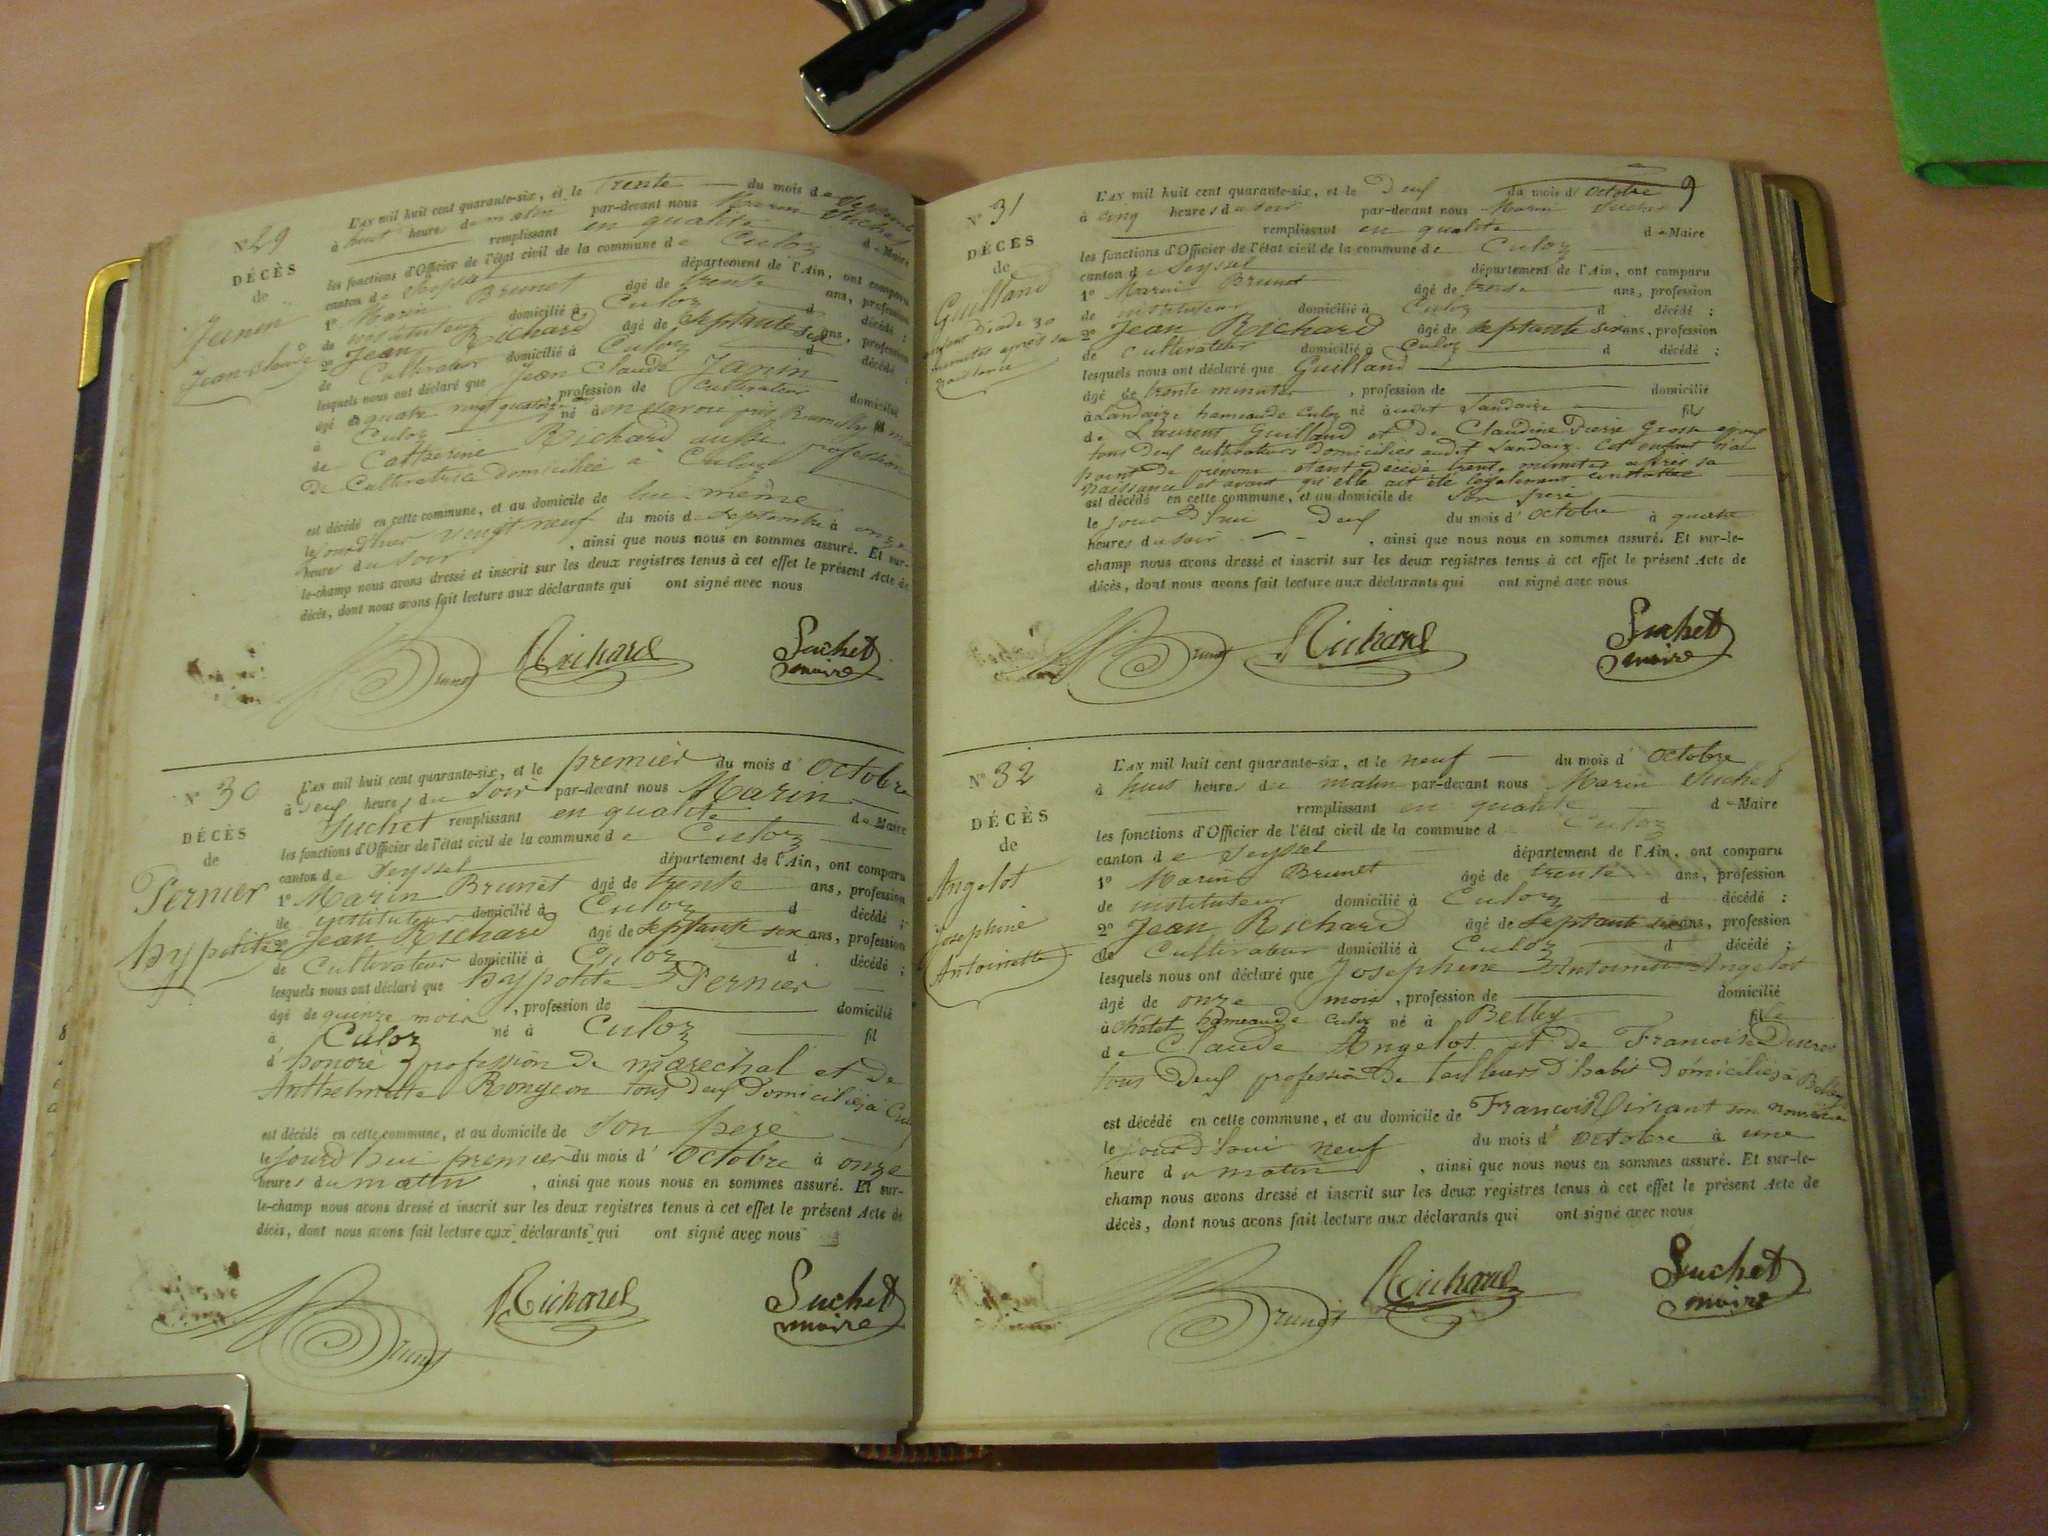 N° 29
DÉCÈS
de
Janin
Jean Claude
L'AN mil huit cent quarante-six, et le trente du mois de Septembre
à huit heures du matin par-devant nous Marin Suchet
remplissant en qualité de Maire
les fonctions d'Officier de l'état civil de la commune de Culoz
canton de Seyssel département de l'Ain, ont comparu
1° Marin Brunet âgé de trente ans, profession
de instituteur domicilié à Culoz d décédé ;
2° Jean Richard âgé de septante six ans, profession
de Cultivateur domicilié à Culoz d décédé :
lesquels nous ont déclaré que Jean Claude Janin
âgé de quatre vingt quatorze profession de Cultivateur domicilié
à Culoz né à en Savoie près Rumilly
de Catherine Richard aussi profession
de Cultivatrice domiciliée à Culoz
est décédé en cette commune, et au domicile de lui même
le jourd'hier vingt neuf du mois de Septembre à onze
heures du soir , ainsi que nous nous en sommes assuré. Et sur-
le-champ nous avons dressé et inscrit sur les deux registres tenus à cet effet le présent Acte de
décès, dont nous avons fait lecture aux déclarants qui ont signé avec nous
Brunet Richard Suchet
maire
N° 30
DÉCÈS
de
Pernier
hyppolite
L'AN mil huit cent quarante-six, et le premier du mois d' Octobre
à deux heures du Soir par-devant nous Marin
Suchet remplissant en qualité de Maire
les fonctions d'Officier de l'état civil de la commune de Culoz
canton de Seyssel département de l'Ain, ont comparu
1° Marin Brunet âgé de trente ans, profession
de instituteur domicilié à Culoz d décédé ;
2° Jean Richard âgé de septante six ans, profession
de Cultivateur domicilié à Culoz d décédé ;
lesquels nous ont déclaré que hyppolite Pernier
âgé de quinze mois , profession de domicilié
à Culoz né à Culoz fil
d' honoré profession de maréchal et de
Anthelmette Rongeon tous deux domiciliés à Culoz
est décédé en cette commune, et au domicile de Son père
le jourd'hui premier du mois d' Octobre à onze
heures du matin , ainsi que nous nous en sommes assuré. Et sur-
le-champ nous avons dressé et inscrit sur les deux registres tenus à cet effet le présent Acte de
décès, dont nous avons fait lecture aux déclarants qui ont signé avec nous
Brunet Richard Suchet
maire
9
N° 31
DÉCÈS
de
Guilland
enfant décédé 30
minutes après sa
naissance
L'AN mil huit cent quarante-six, et le Deux du mois d' Octobre
à cinq heures du soir par-devant nous Marin Suchet
remplissant en qualité de Maire
les fonctions d'Officier de l'état civil de la commune de Culoz
canton de Seyssel département de l'Ain, ont comparu
1° Marin Brunet âgé de trente ans, profession
de instituteur domicilié à Culoz d décédé ;
2° Jean Richard âgé de septante six ans, profession
de Cultivateur domicilié à Culoz d décédé ;
lesquels nous ont déclaré que Guilland
âgé de trente minutes , profession de domicilié
à Landaize hameau de Culoz né à audit Landaize fils
de Laurent Guilland et de Claudine Pierre Grosse
tous deux cultivateurs domiciliés audit Landaiz. Cet enfant n'a
point de prénom étant décédé trente minutes après sa
naissance et avant qu'elle ait été légalement constatée
est décédé en cette commune, et au domicile de Son père
le jourd'hui Deux du mois d' Octobre à quatre
heures du soir , ainsi que nous nous en sommes assuré. Et sur-le-
champ nous avons dressé et inscrit sur les deux registres tenus à cet effet le présent Acte de
décès, dont nous avons fait lecture aux déclarants qui ont signé avec nous
Brunet Richard Suchet
maire
N° 32
DÉCÈS
de
Angelot
Joséphine
Antoinette
L'AN mil huit cent quarante-six, et le neuf du mois d' Octobre
à huit heures du matin par-devant nous Marin Suchet
remplissant en qualité de Maire
les fonctions d'Officier de l'état civil de la commune d Culoz
canton de Seyssel département de l'Ain, ont comparu
1° Marin Brunet âgé de trente ans, profession
de instituteur domicilié à Culoz d décédé :
2° Jean Richard âgé de septante six ans, profession
de Cultivateur domicilié à Culoz d décédé ;
lesquels nous ont déclaré que Josephine Antoinette Angelot
âgé de onze mois , profession de domicilié
à Châtel hameau de Culoz né à Belley fille
de Claude Angelot et de Francoise Ducros
tous deux profession de tailleurs d'habit domiciliés à Belley
est décédé en cette commune, et au domicile de Francois son nourricier
le jourd'hui neuf du mois d' Octobre à une
heure du matin , ainsi que nous nous en sommes assuré. Et sur-le-
champ nous avons dressé et inscrit sur les deux registres tenus à cet effet le présent Acte de
décès, dont nous avons fait lecture aux déclarants qui ont signé avec nous
Brunet Richard Suchet
maire